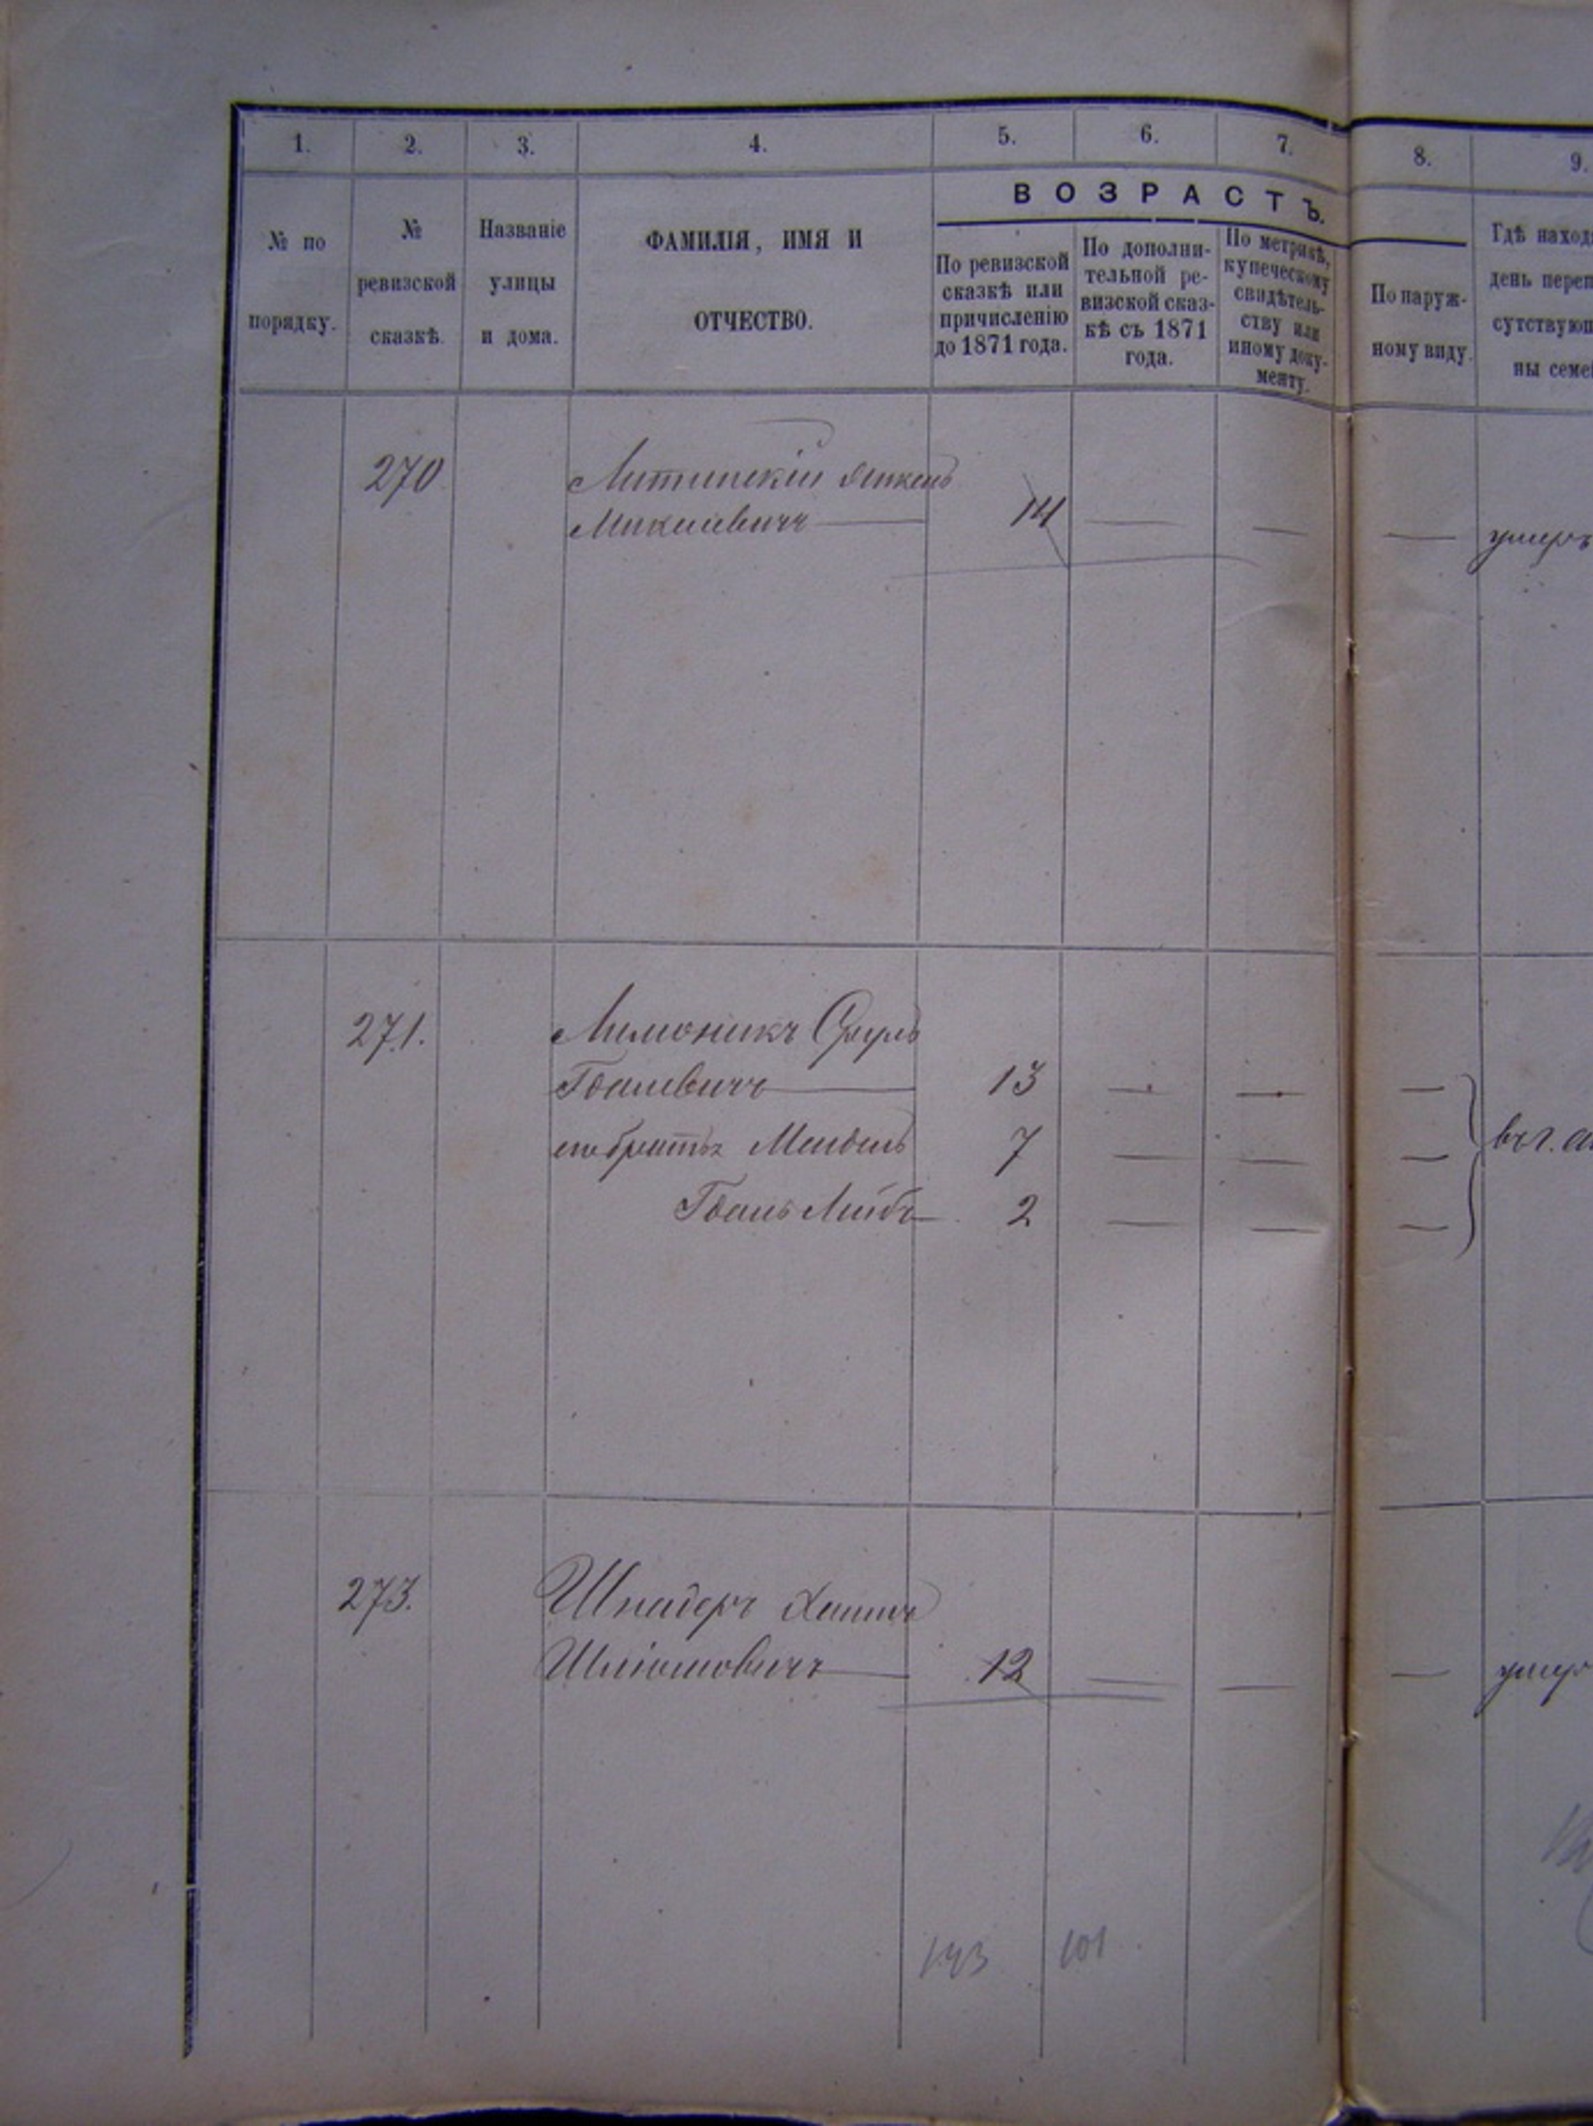 1. 2. 3. 4. 5. 6. 7. 8. 9.
№ по порядку.
№ ревизской сказкѣ.
Названіе улицы и дома.
ФАМИЛІЯ, ИМЯ И ОТЧЕСТВО.
ВОЗРАСТЪ.
По ревизской сказкѣ или причисленію до 1871 года.
По дополни-тельной ре-визской сказ-кѣ съ 1871 года.
По метрикѣ, купеческому свидѣтель-ству или иному доку-менту.
По наруж-ному виду.
Гдѣ наход
день переп
сутствующ
ны семе
270 Литинскій
14 — — — умеръ
271. Лимоникъ Сруль
Гдалевичъ — 13 — — —
его братья Мендель 7 — — — въ г.
Гдаль Лейба — 2 — — —
273. Шнайдеръ Хаимъ
Шліомовичъ — 12 — — — умер
143 101